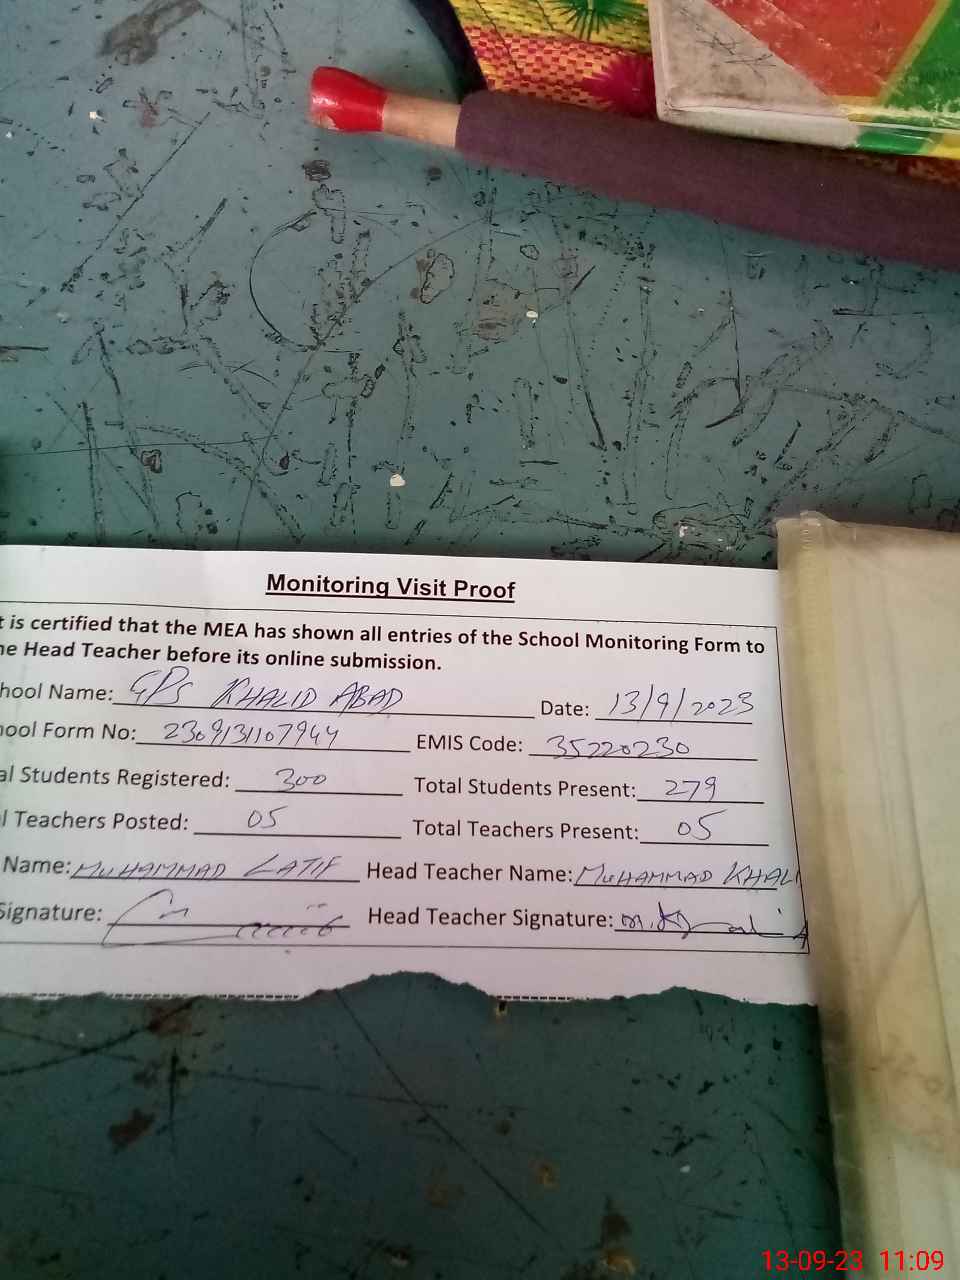 Monitoring Visit Proof
t is certified that the MEA has shown all entries of the School Monitoring Form to
he Head Teacher before its online submission.
hool Name: GPS KHALID ABAD Date: 13/9/2023
hool Form No: 2309131107944 EMIS Code: 35220230
al Students Registered: 300 Total Students Present: 279
l Teachers Posted: 05 Total Teachers Present: 05
Name: MUHAMMAD LATIF Head Teacher Name: MUHAMMAD KHALI
Signature: Head Teacher Signature:
13-09-23 11:09